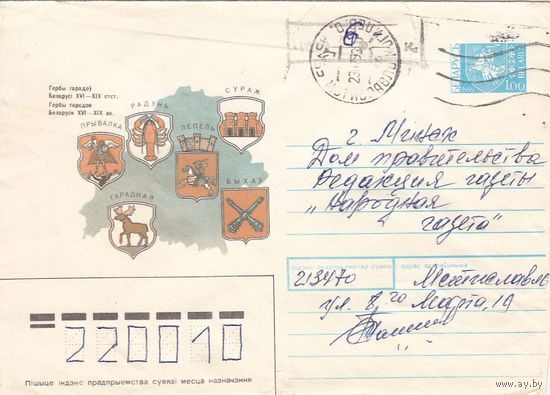 Гербы гарадоў
Беларусі XVI—XIX стст.
Гербы городов
Беларуси XVI—XIX вв.
ПРЫВАЛКА
РАДУНЬ
СУРАЖ
ЛЕПЕЛЬ
ГАРАДНАЯ
БЫХАЎ
БЕЛАРУСЬ
1.00
г. Минск
Дом правительства
Редакция газеты
"Народная
газета"
Індэкс прадпрыемства сувязі
адрас адпраўшчыка
213470
Мстиславль
ул. 8го Марта, 19
220010
Пішыце індэкс прадпрыемства сувязі месца назначэння
www.ay.by